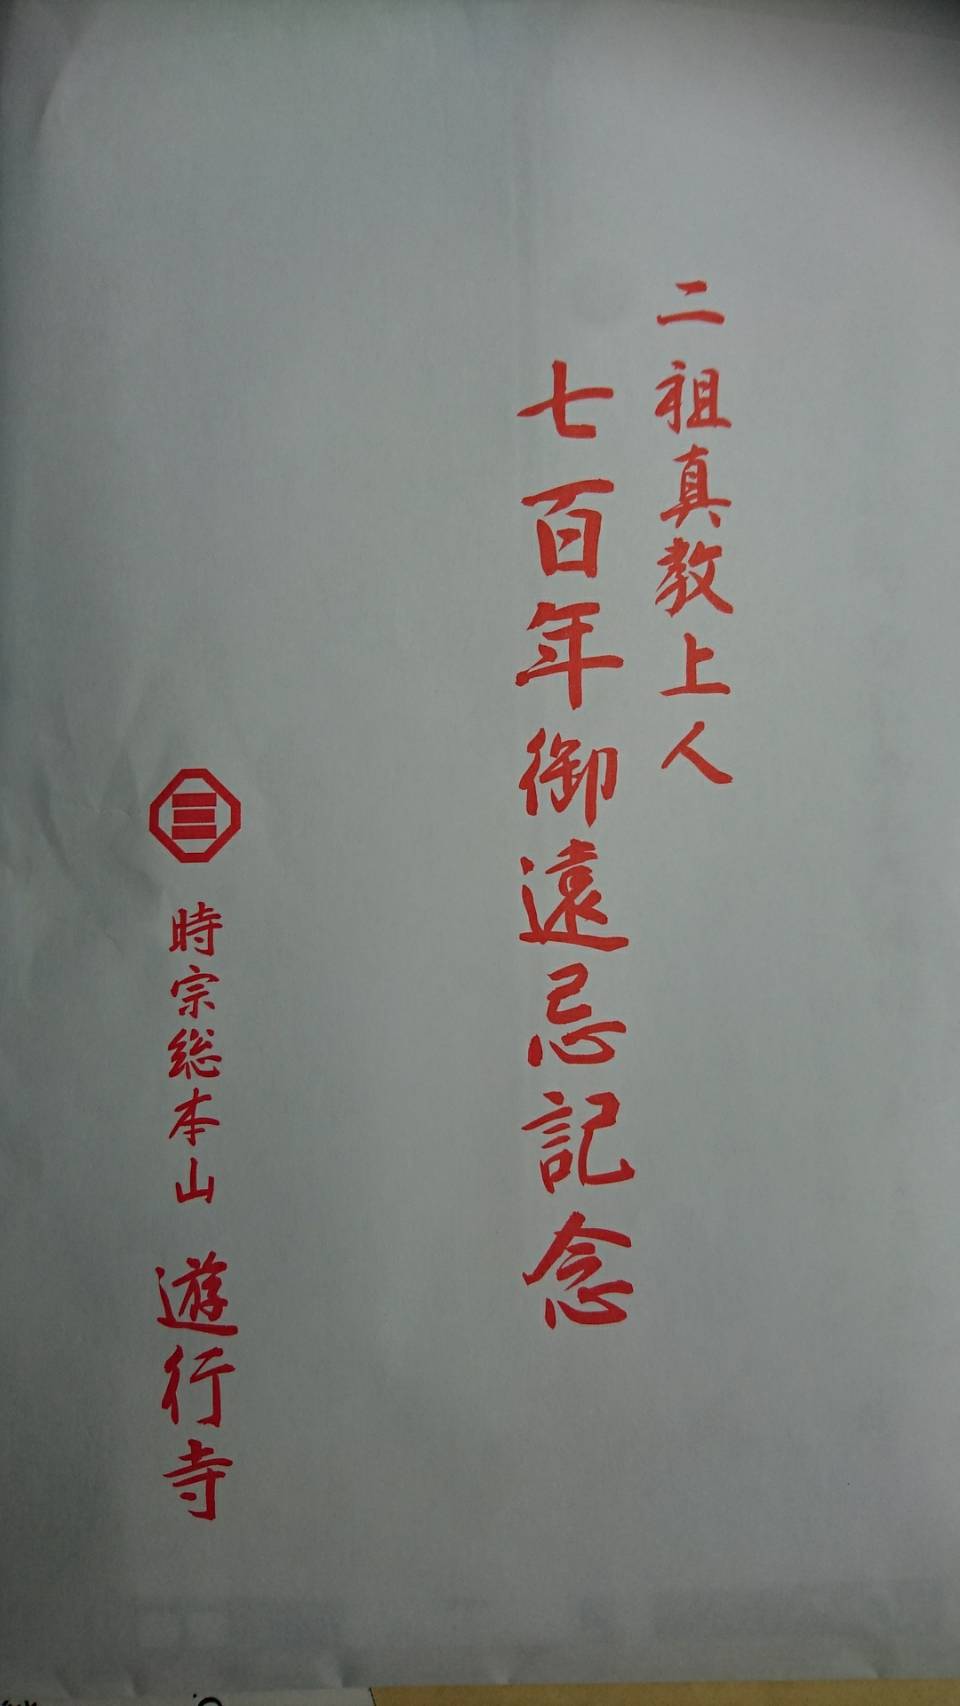 二祖真教上人
七百年御遠忌記念
時宗総本山 遊行寺